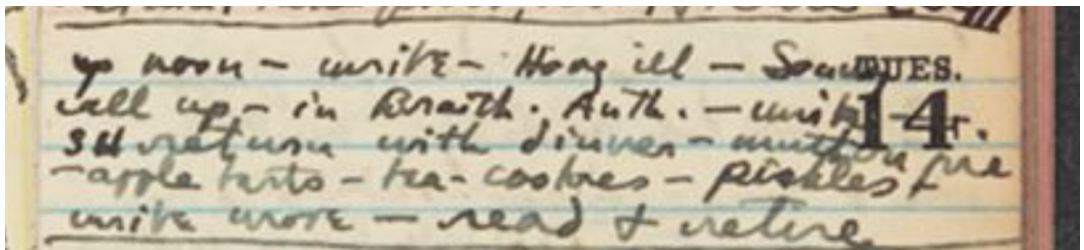 up noon – write – Hoag ill – Sonny TUES.
call up – in Braith. Anth. – write – 14
SH return with dinner – mutton pie
– apple tarts – tea – cookies – pickles &
write more – read & retire